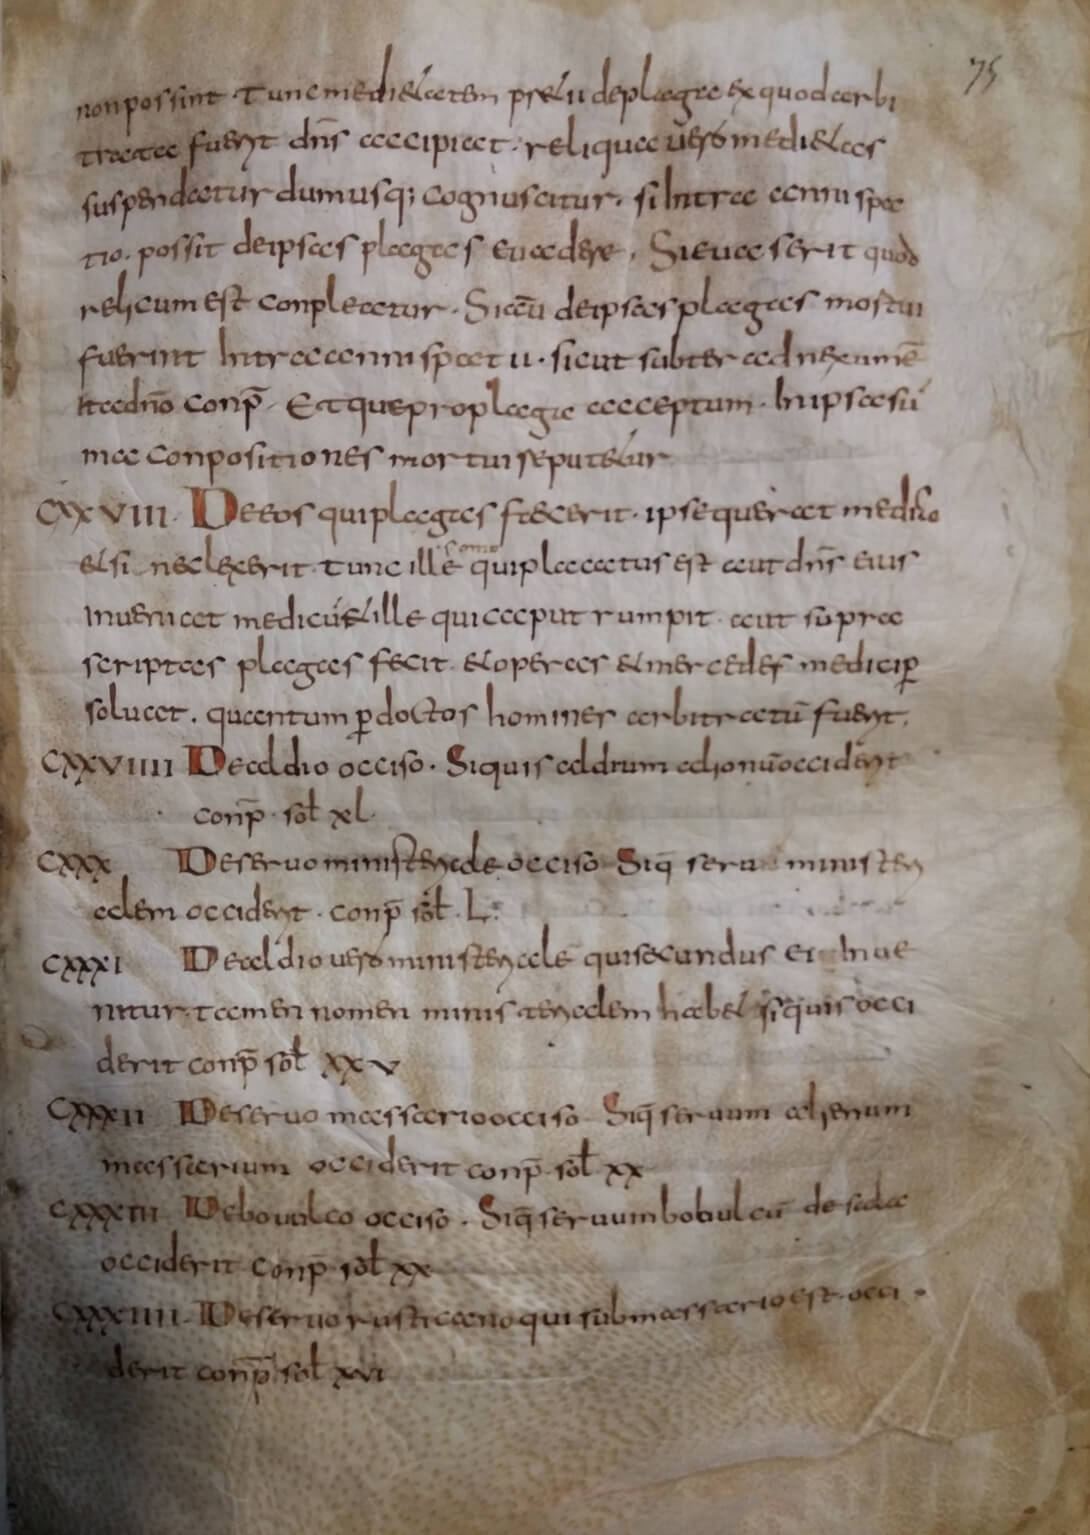 75
non possint Tunc medietatem pretii de plagae ex quod arbi
tratae fuerit dn̄s accipiat. reliqua uero medietas
suspendatur dum usq; cognuscitur. si Intra anni spa
tio. possit de ipsas plagas euadere. Si euaserit quod
relicum est conpleatur. Si aū de ipsas plagas mortui
fuerint Intra anni spatiu. sicut subter adnexum ē
ita ad dn̄o conp̄. Et que pro plagae acceptum. In ipsa sū
ma conpositiones mortui reputetur
CXXVIII. De eos qui plagas fecerit. ipse querat medico
et si neclexerit. tunc ille homo qui placatus est aut dn̄s eius
inueniat medicū et ille qui caput rumpit. aut supra
scriptas plagas fecit. et operas et mercedes medici p
soluat. quantum p doctos homines arbitratū fuerit.
CXXVIIII De aldio occiso. Si quis aldium alionū occiderit
conp̄. sol XL
CXXX De seruo ministeriale occiso Si q̄ seru ministeri
alem occiderit. conp̄ sol. L.
CXXXI De aldio uero ministeriale qui secundus ei Inue
nitur. tamen nomen ministerialem habet si quis occi
derit conp̄ sol XXV
CXXXII De seruo massario occiso Si q̄ seruum alienum
massarium occiderit conp̄ sol XX
CXXXIII De bouulco occiso. Si q̄ seruum bobulcū de sala
occiderit conp̄ sol XX
CXXXIIII. De seruo rusticano qui sub massario est. occi
derit conp̄ sol XVI